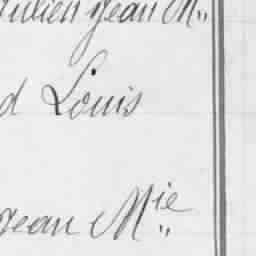 Julien Jean M"
d Louis
Jean Mie "